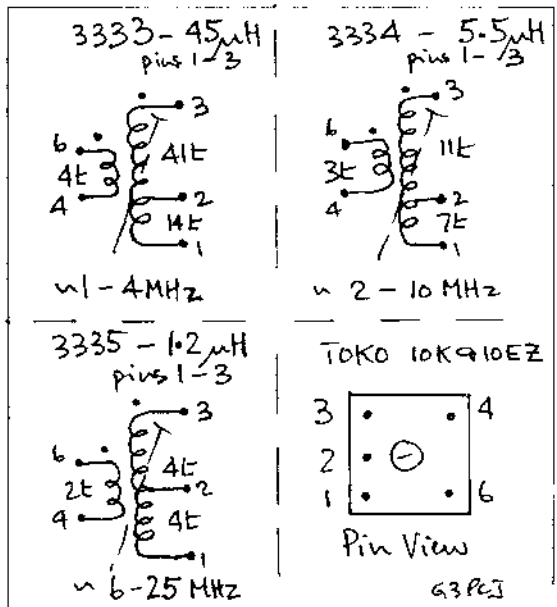 3333 - 45µH
pins 1-3
3
6
41t
4t
4
2
14t
1
~1 - 4 MHz
3334 - 5.5µH
pins 1-3
3
6
11t
3t
4
2
7t
1
~ 2 - 10 MHz
3335 - 1.2µH
pins 1-3
3
6
4t
2t
2
4
4t
1
~ 6 - 25 MHz
TOKO 10K & 10EZ
3 4
2
1 6
Pin View
G3PCJ